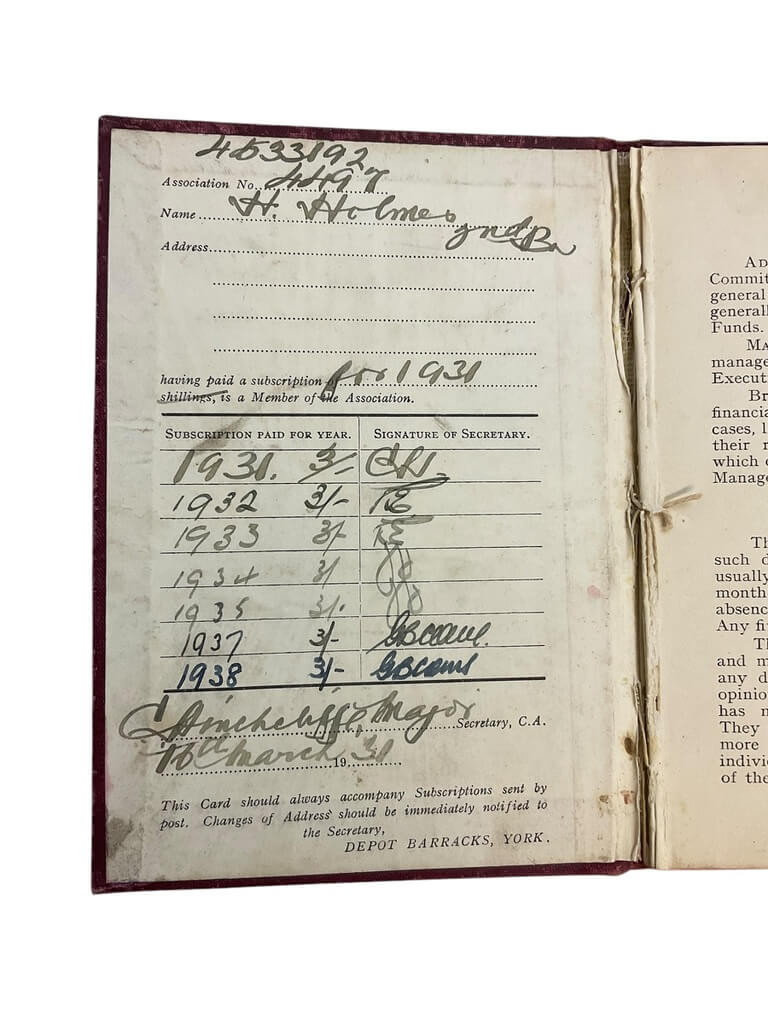 4533192
Association No. 4497
Name H. Holmes
2nd Bn
Address
having paid a subscription of for 1931
shillings, is a Member of the Association.
SUBSCRIPTION PAID FOR YEAR. SIGNATURE OF SECRETARY.
1931. 3/-
1932 3/-
1933 3/-
1934 3/
1935 3/-
1937 3/-
1938 3/-
C Hinchcliffe, Major Secretary, C.A.
16th March 1931
This Card should always accompany Subscriptions sent by
post. Changes of Address should be immediately notified to
the Secretary,
DEPOT BARRACKS, YORK.
AD
Commit
general
generall
Funds.
MA
manage
Executi
Br
financia
cases, l
their r
which
Manage
Th
such d
usually
month
absenc
Any fi
Th
and m
any d
opinio
has n
They
more
indivi
of the